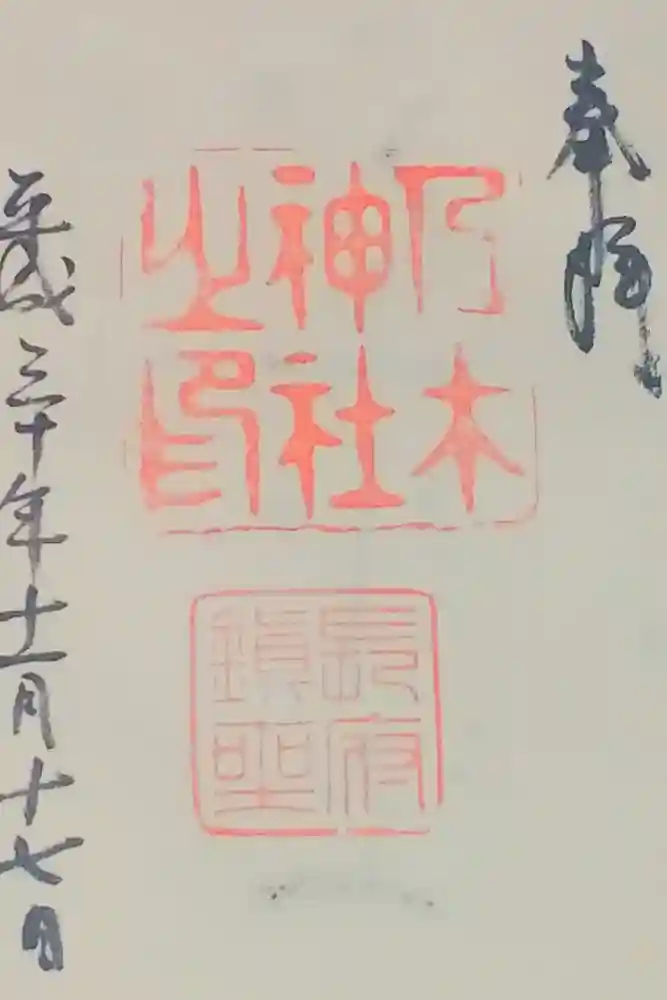 奉拝
乃木
神社
之印
長府
鎮座
平成三十年十一月十七日